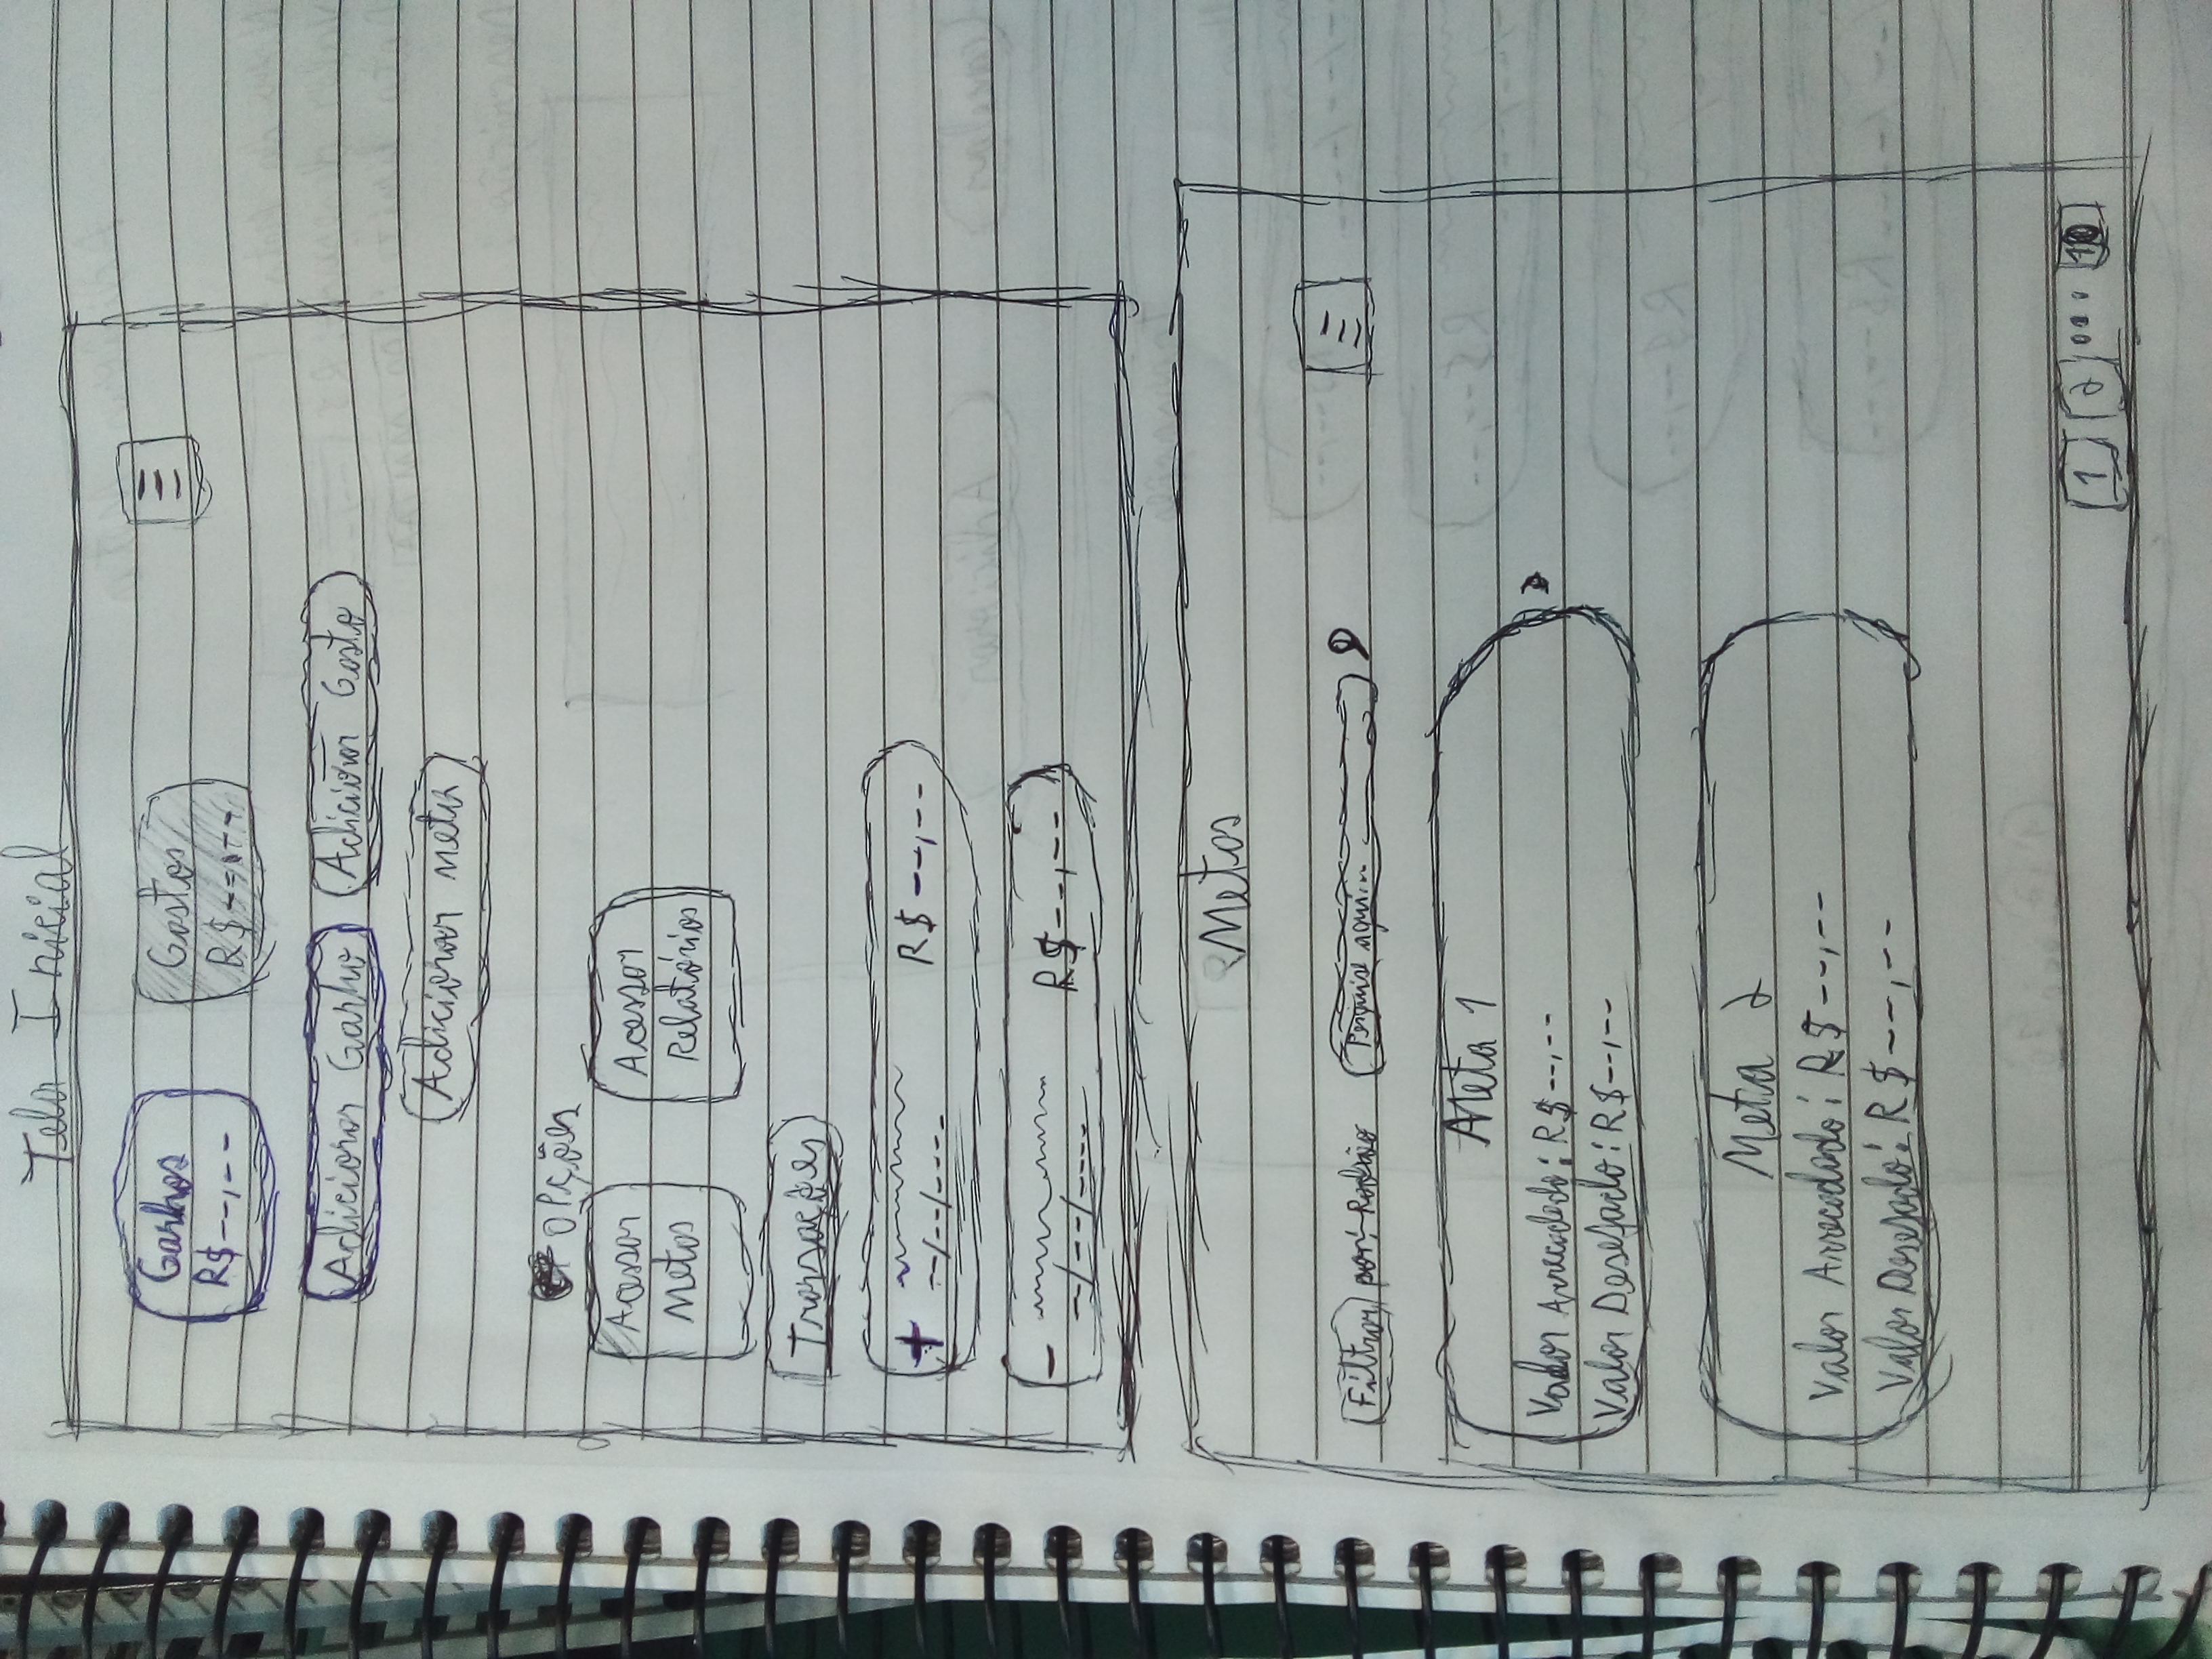 Tela Inicial
Ganhos
R$--,--
Gastos
R$--,--
Adicionar Ganho
Adicionar Gasto
Adicionar meta
Opções
Acessar
Metas
Acessar
Relatórios
Transações
+ R$--,--
--/--/----
- R$--,--
--/--/----
Metas
Filtrar por: Pesquise aqui...
Meta 1
Valor Arrecadado: R$--,--
Valor Desejado: R$--,--
Meta 2
Valor Arrecadado: R$--,--
Valor Desejado: R$--,--
1 2 ... 10